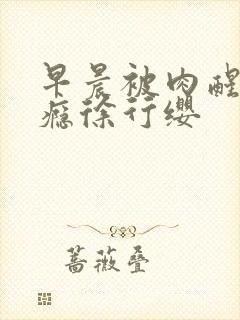 早晨被肉醒
瘾徐行缨
蔷薇叠